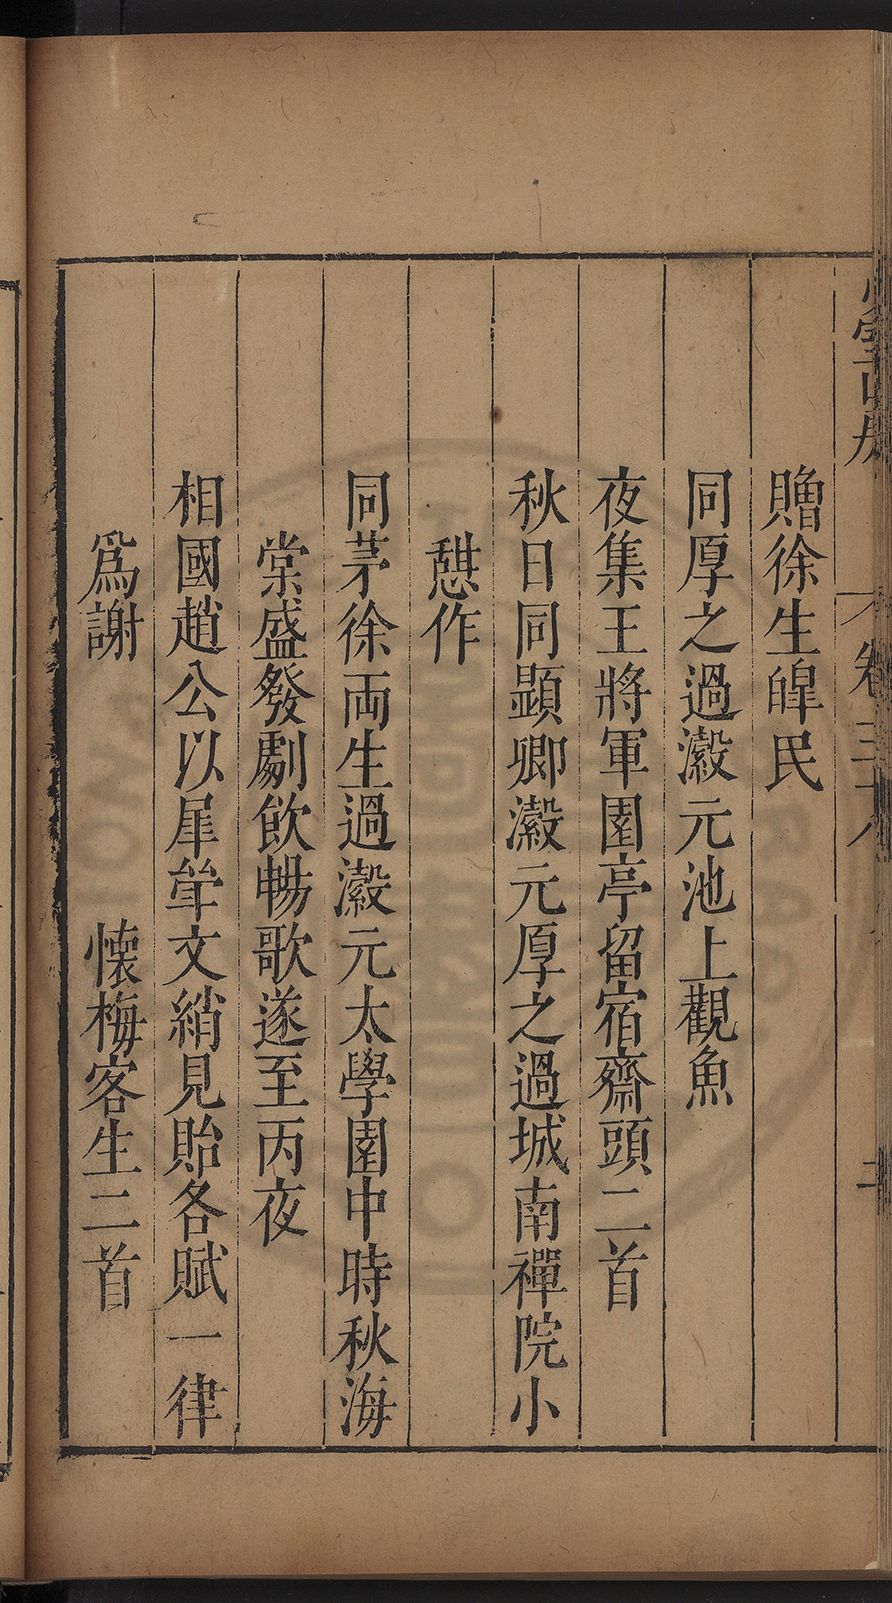 贈徐生皡民
同厚之過瀫元池上觀魚
夜集王將軍園亭留宿齋頭二首
秋日同顯卿瀫元厚之過城南禪院小
憇作
同茅徐両生過瀫元太學園中時秋海
棠盛發劇飲暢歌遂至丙夜
相國趙公以犀帶文綃見貽各賦一律
爲謝　懷梅客生二首